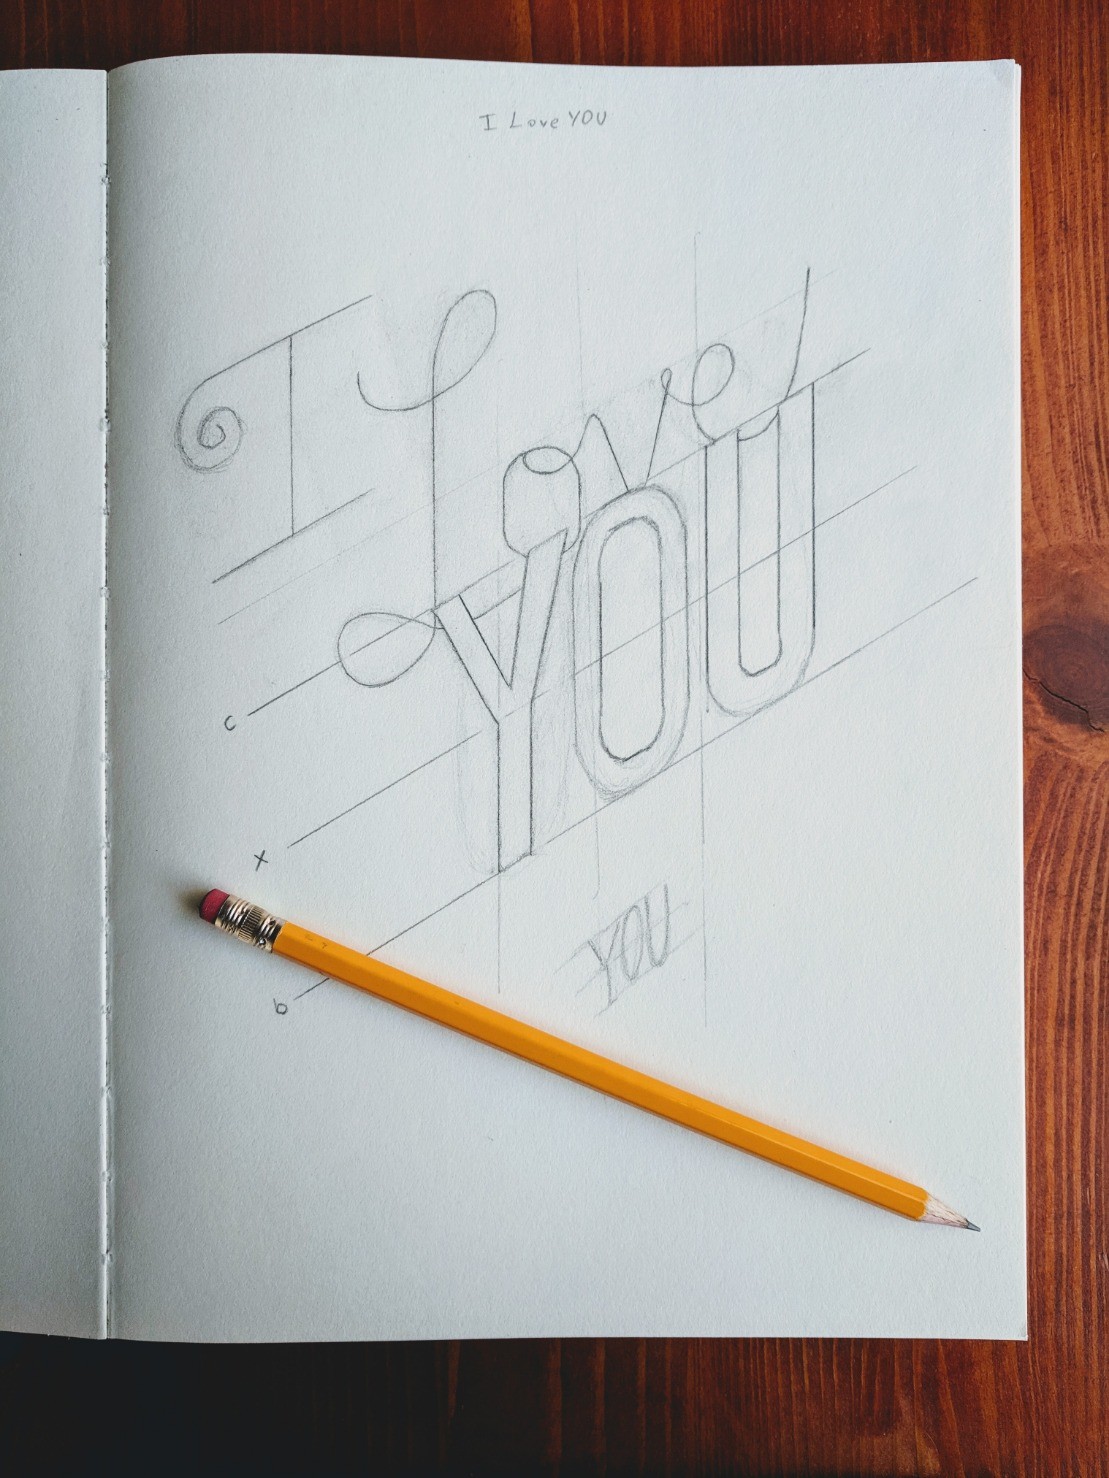 I Love YOU
I
Love
YOU
c
x
b
YOU